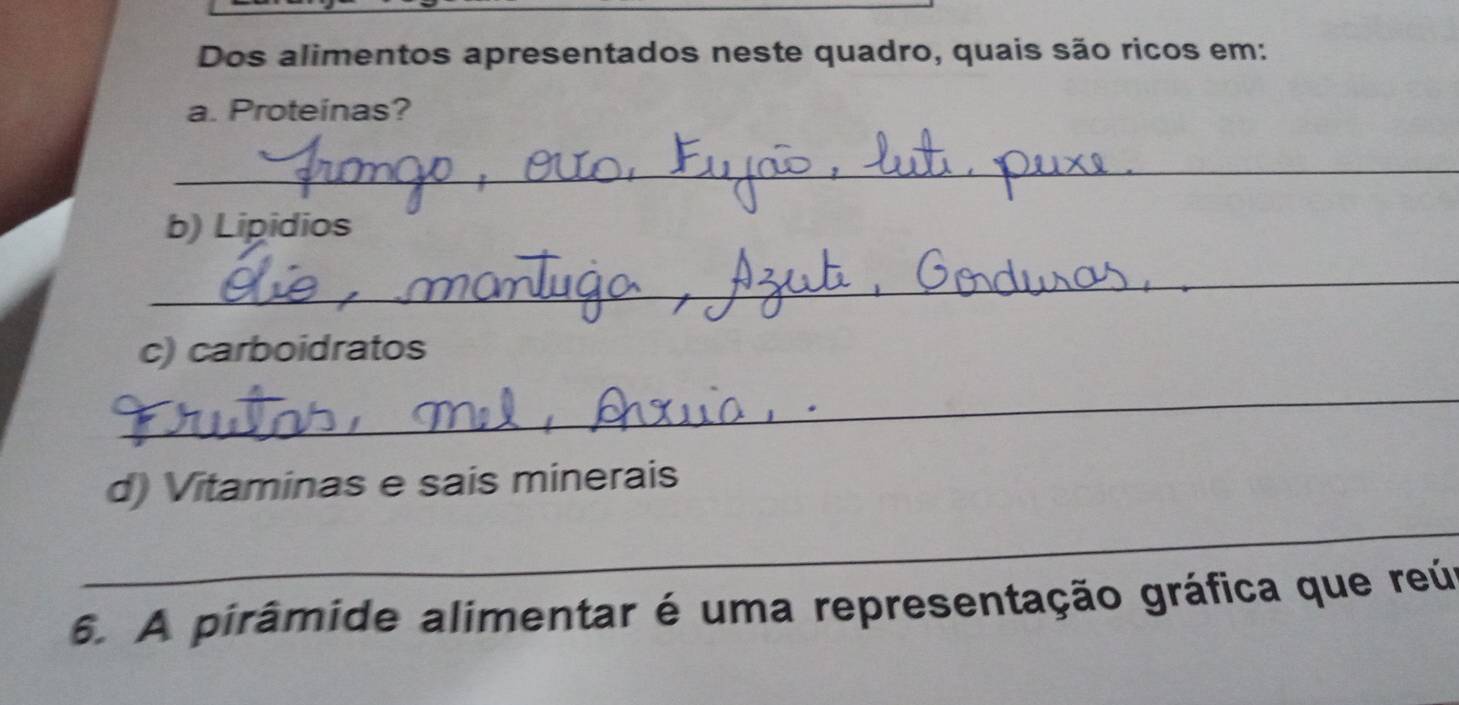 Dos alimentos apresentados neste quadro, quais são ricos em:
a. Proteínas?
frango, ovo, Fejão, leite, peixe.
b) Lipidios
óleo, manteiga, Azeite, Gorduras,.
c) carboidratos
Frutas, mel,
d) Vitaminas e sais minerais
6. A pirâmide alimentar é uma representação gráfica que reú